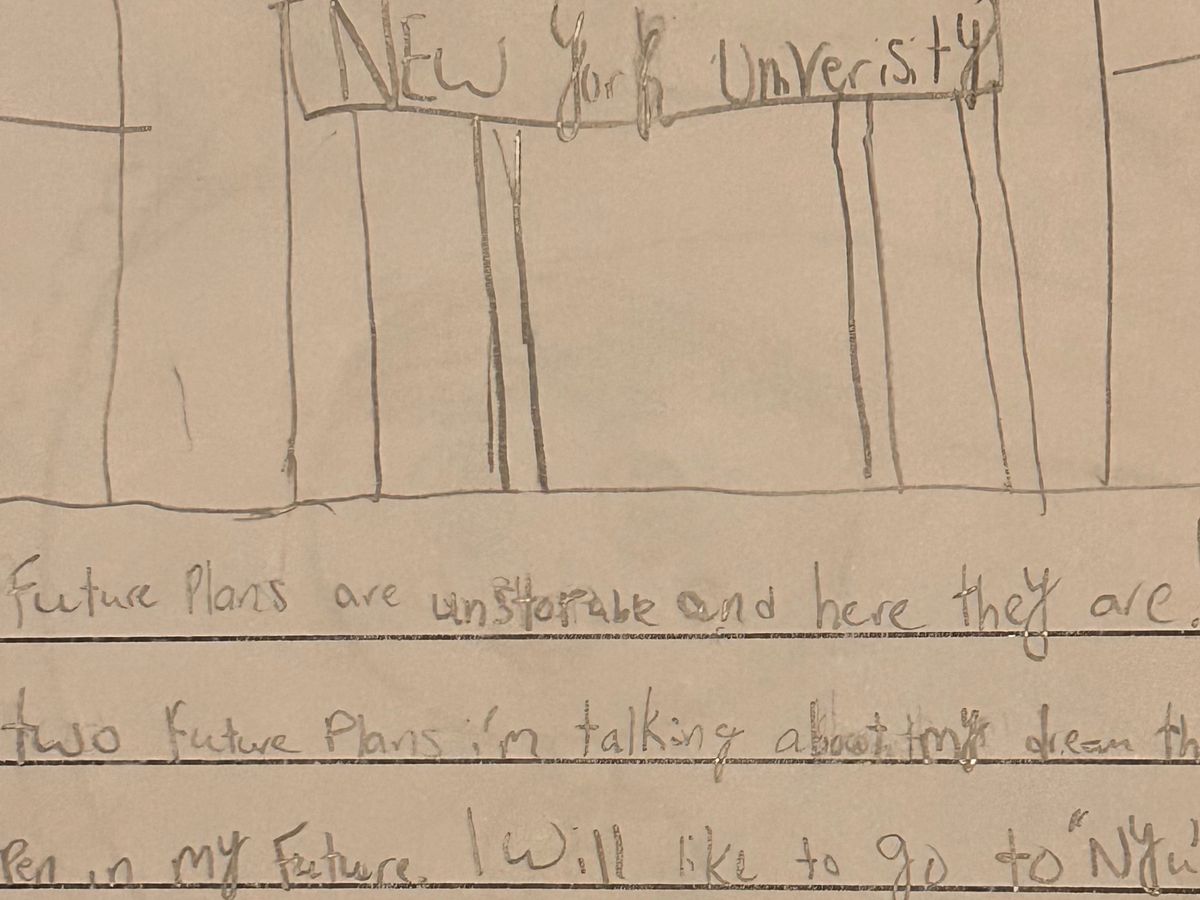 NEW York Unverisity
Future Plans are unstorable and here they are.
two future Plans i'm talking about my dream th
Pen in my Future. I Will like to go to "NYU"